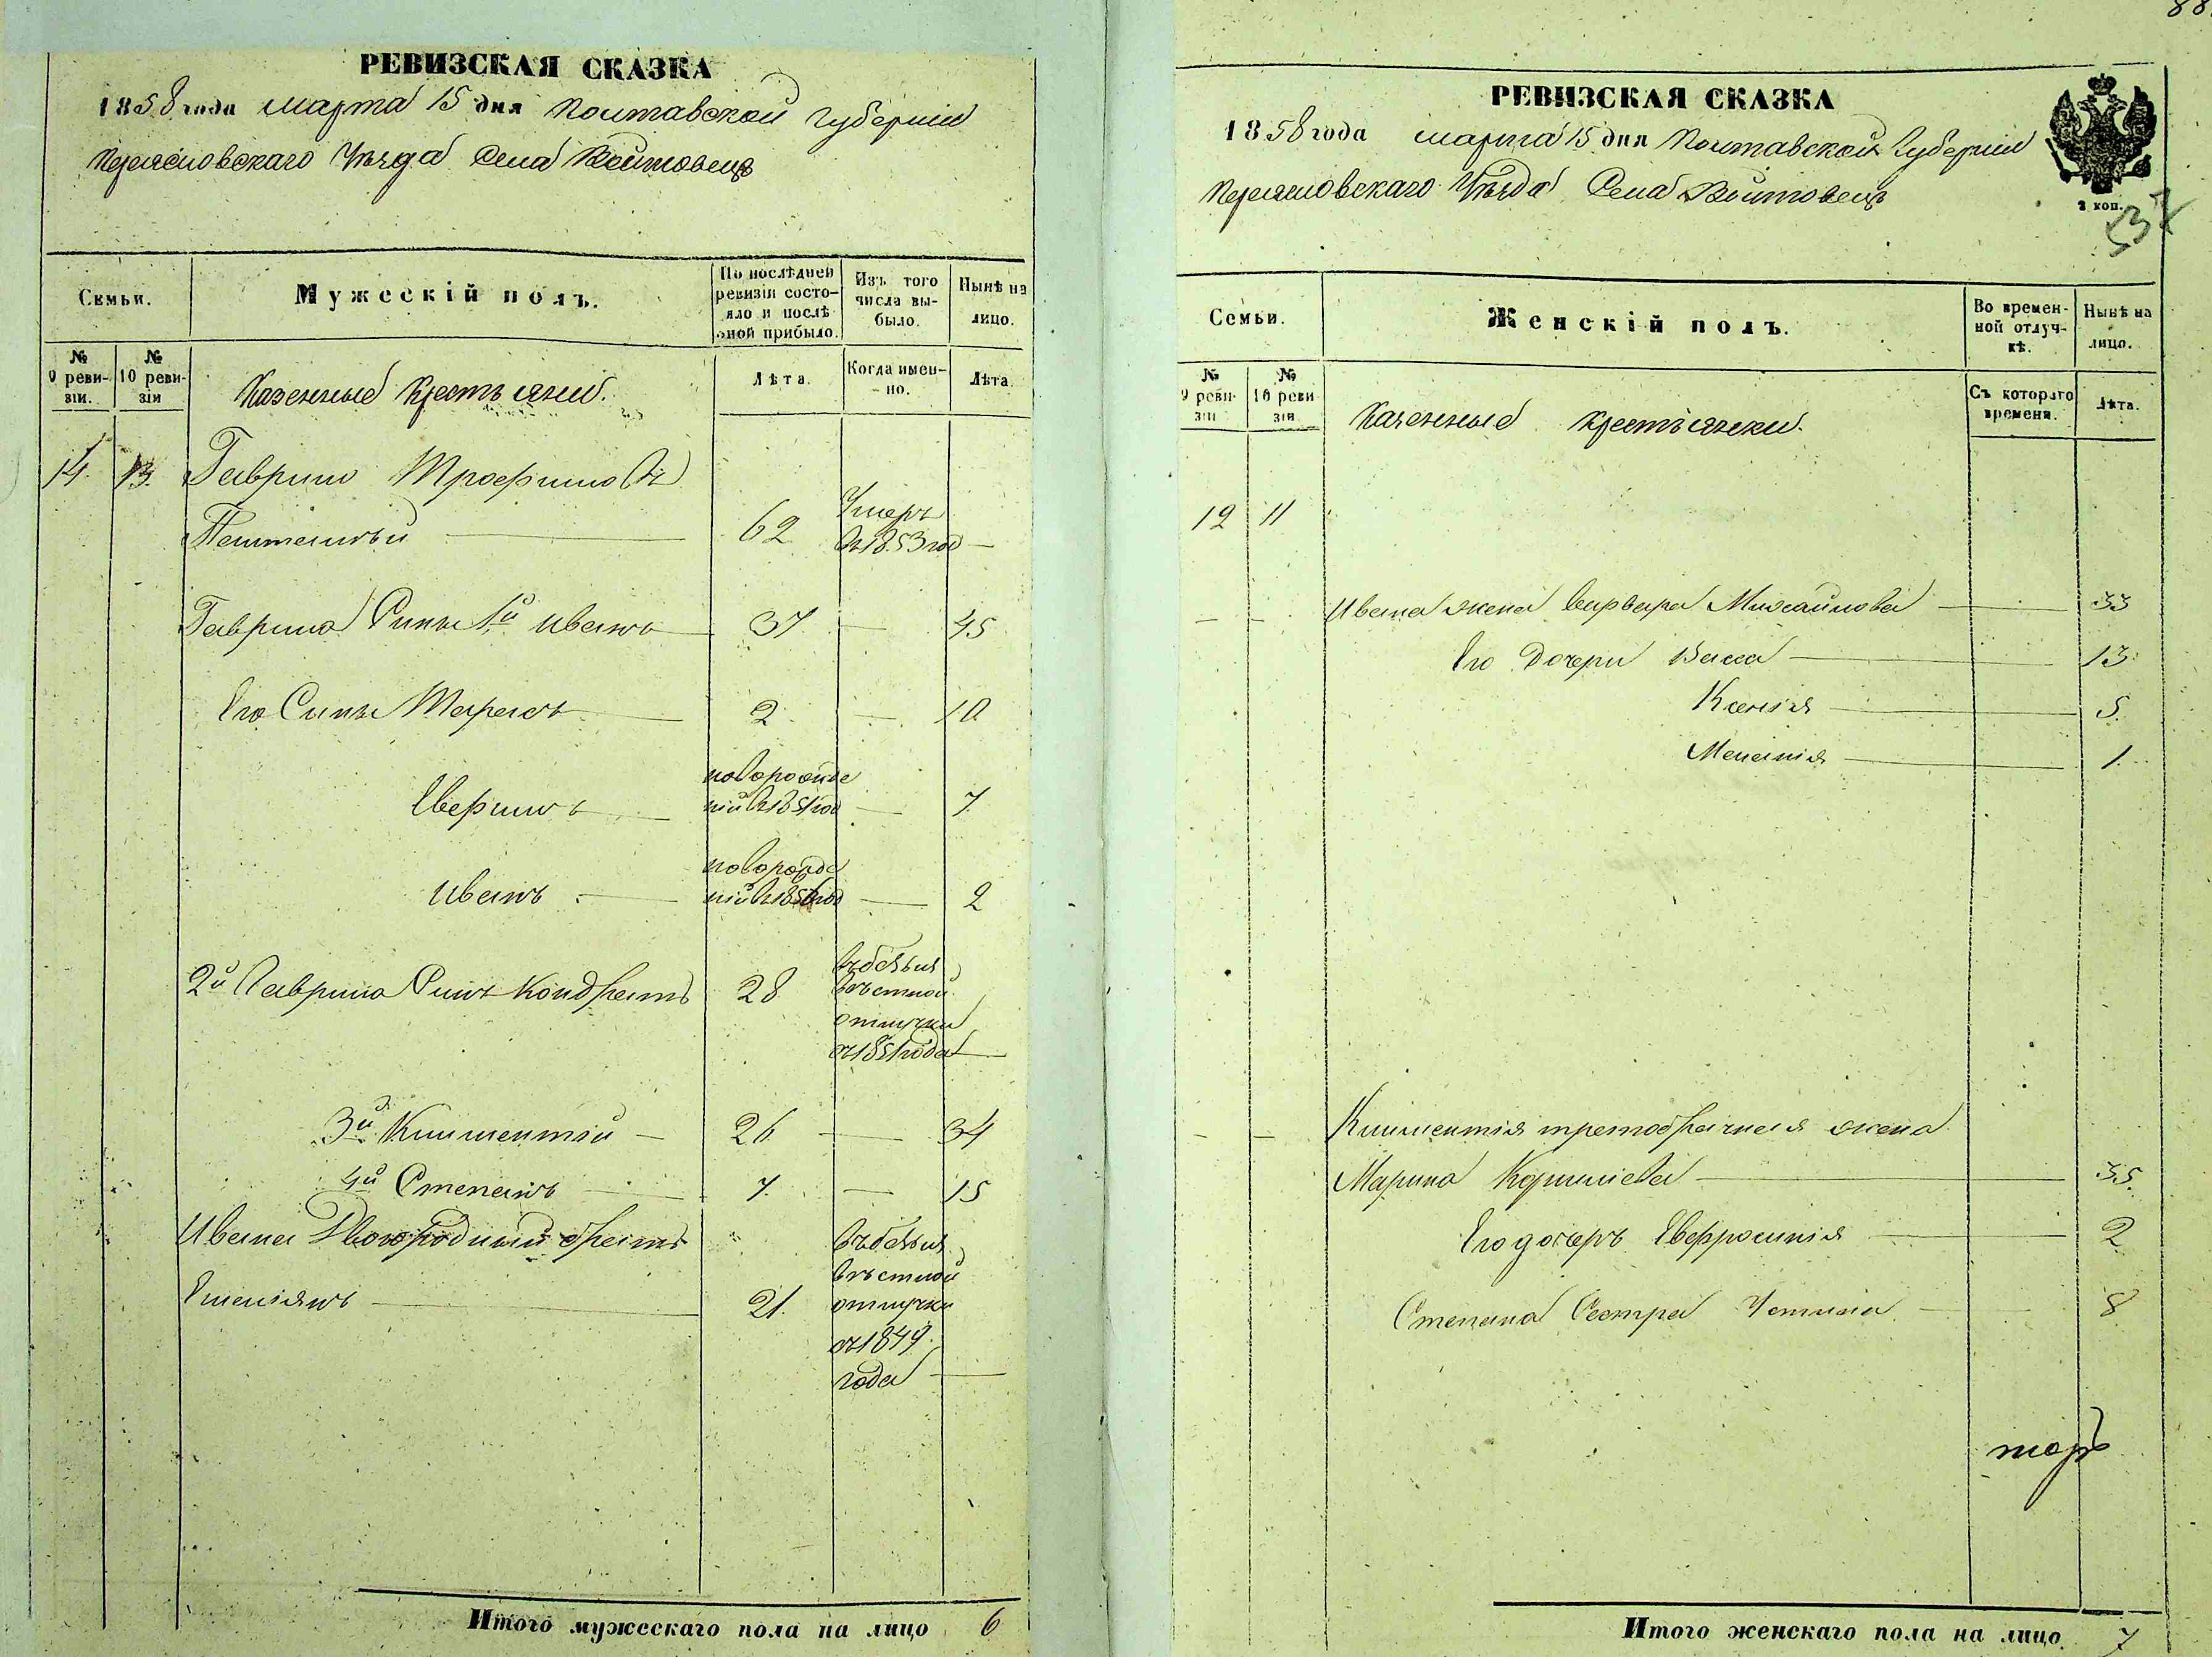 РЕВИЗСКАЯ СКАЗКА
1858 года марта 15 дня Полтавской Губернии
Переясловскаго Уѣзда Села Войтовецъ
Семьи.
Мужескій полъ.
По послѣдней ревизіи состояло и послѣ оной прибыло.
Изъ того числа выбыло.
Нынѣ на лицо.
№ 9 ревизіи.
№ 10 ревизіи
Казенные Крестьяне.
Лѣта.
Когда именно.
Лѣта.
14. 13. Гаврило Трофимовъ
62 Умеръ
въ 1853 год —
Гаврила Сынъ 1й Иванъ 37 — 45
Его Сыны Тарасъ 2 — 10
новорожде
Евфимъ ній въ 1851 год — 7
новорожде
Иванъ ній въ 1856 год — 2
въ безъиз
2й Гаврила Сынъ Кондратъ 28 вѣстной
отлучки
съ 1851 года —
3й Климентій 26 — 34
4й Степанъ 7. — 15
Ивана Двоюродный братъ въ безъиз
вѣстной
Емеліянъ 21. отлучки
съ 1849
года —
Итого мужескаго пола на лицо 6
88
РЕВИЗСКАЯ СКАЗКА
1858 года марта 15 дня Полтавской Губерніи
Переясловскаго Уѣзда Села Войтовецъ
2 коп.
Семьи.
Женскій полъ.
Во временной отлучкѣ.
Нынѣ на лицо.
№ 9 ревизіи
№ 10 ревизіи
Казенные крестьянки.
Съ котораго времени.
Лѣта.
12 11
— — Ивана жена Варвара Михайлова — 33
Его Дочери Васса — 13
Ксенія — 5.
Меланія — 1.
— — Климентія третобрачная жена
Марина Корнилева — 35.
Его дочерь Евфросинія — 2
Степана Сестра Устинія — 8
Итого женскаго пола на лицо 7